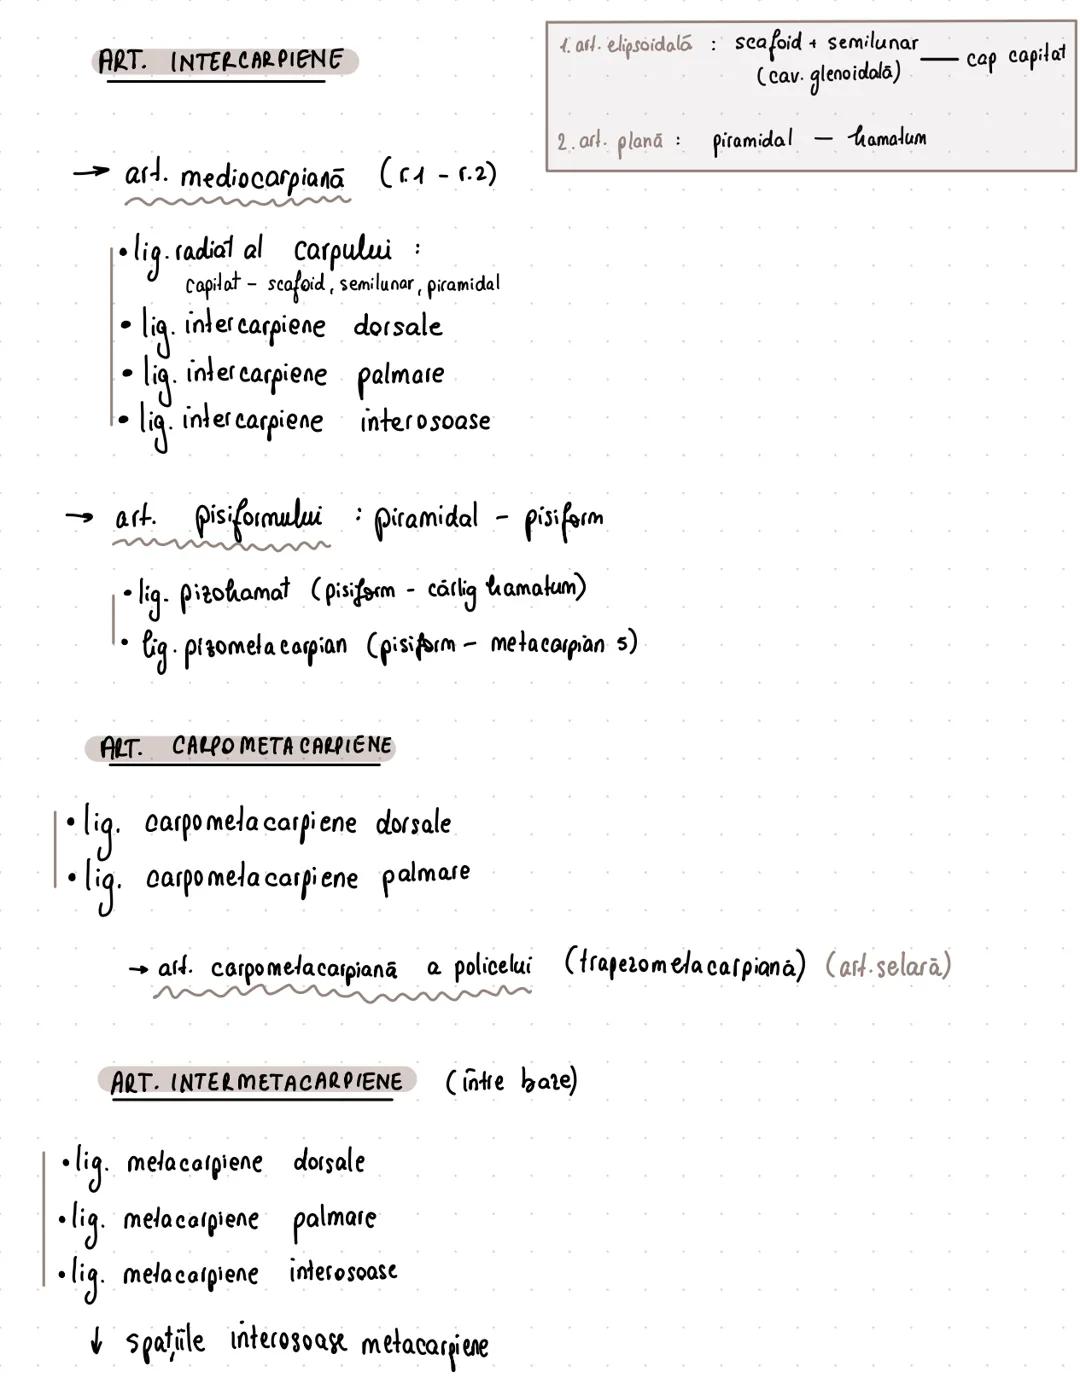 ART. INTERCARPIENE
1. art. elipsoidală : scafoid + semilunar — cap capitat
(cav. glenoidală)
2. art. plană : piramidal — hamatum
→ art. mediocarpiană (r.1 - r.2)
• lig. radiat al carpului :
capitat - scafoid, semilunar, piramidal
• lig. intercarpiene dorsale
• lig. intercarpiene palmare
• lig. intercarpiene interosoase
→ art. pisiformului : piramidal - pisiform
• lig. pizohamat (pisiform - cârlig hamatum)
• lig. pizometacarpian (pisiform - metacarpian 5)
ART. CARPOMETACARPIENE
• lig. carpometacarpiene dorsale
• lig. carpometacarpiene palmare
→ art. carpometacarpiană a policelui (trapezometacarpiană) (art. selară)
ART. INTERMETACARPIENE (între baze)
• lig. metacarpiene dorsale
• lig. metacarpiene palmare
• lig. metacarpiene interosoase
↓ spațiile interosoase metacarpiene